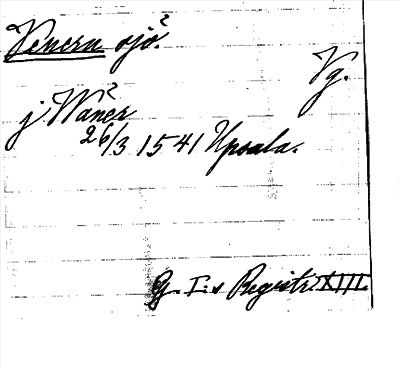 Venern sjö.
Vg.
j Wäner
26/3 1541 Upsala.
G. I:s Registr. XIII.